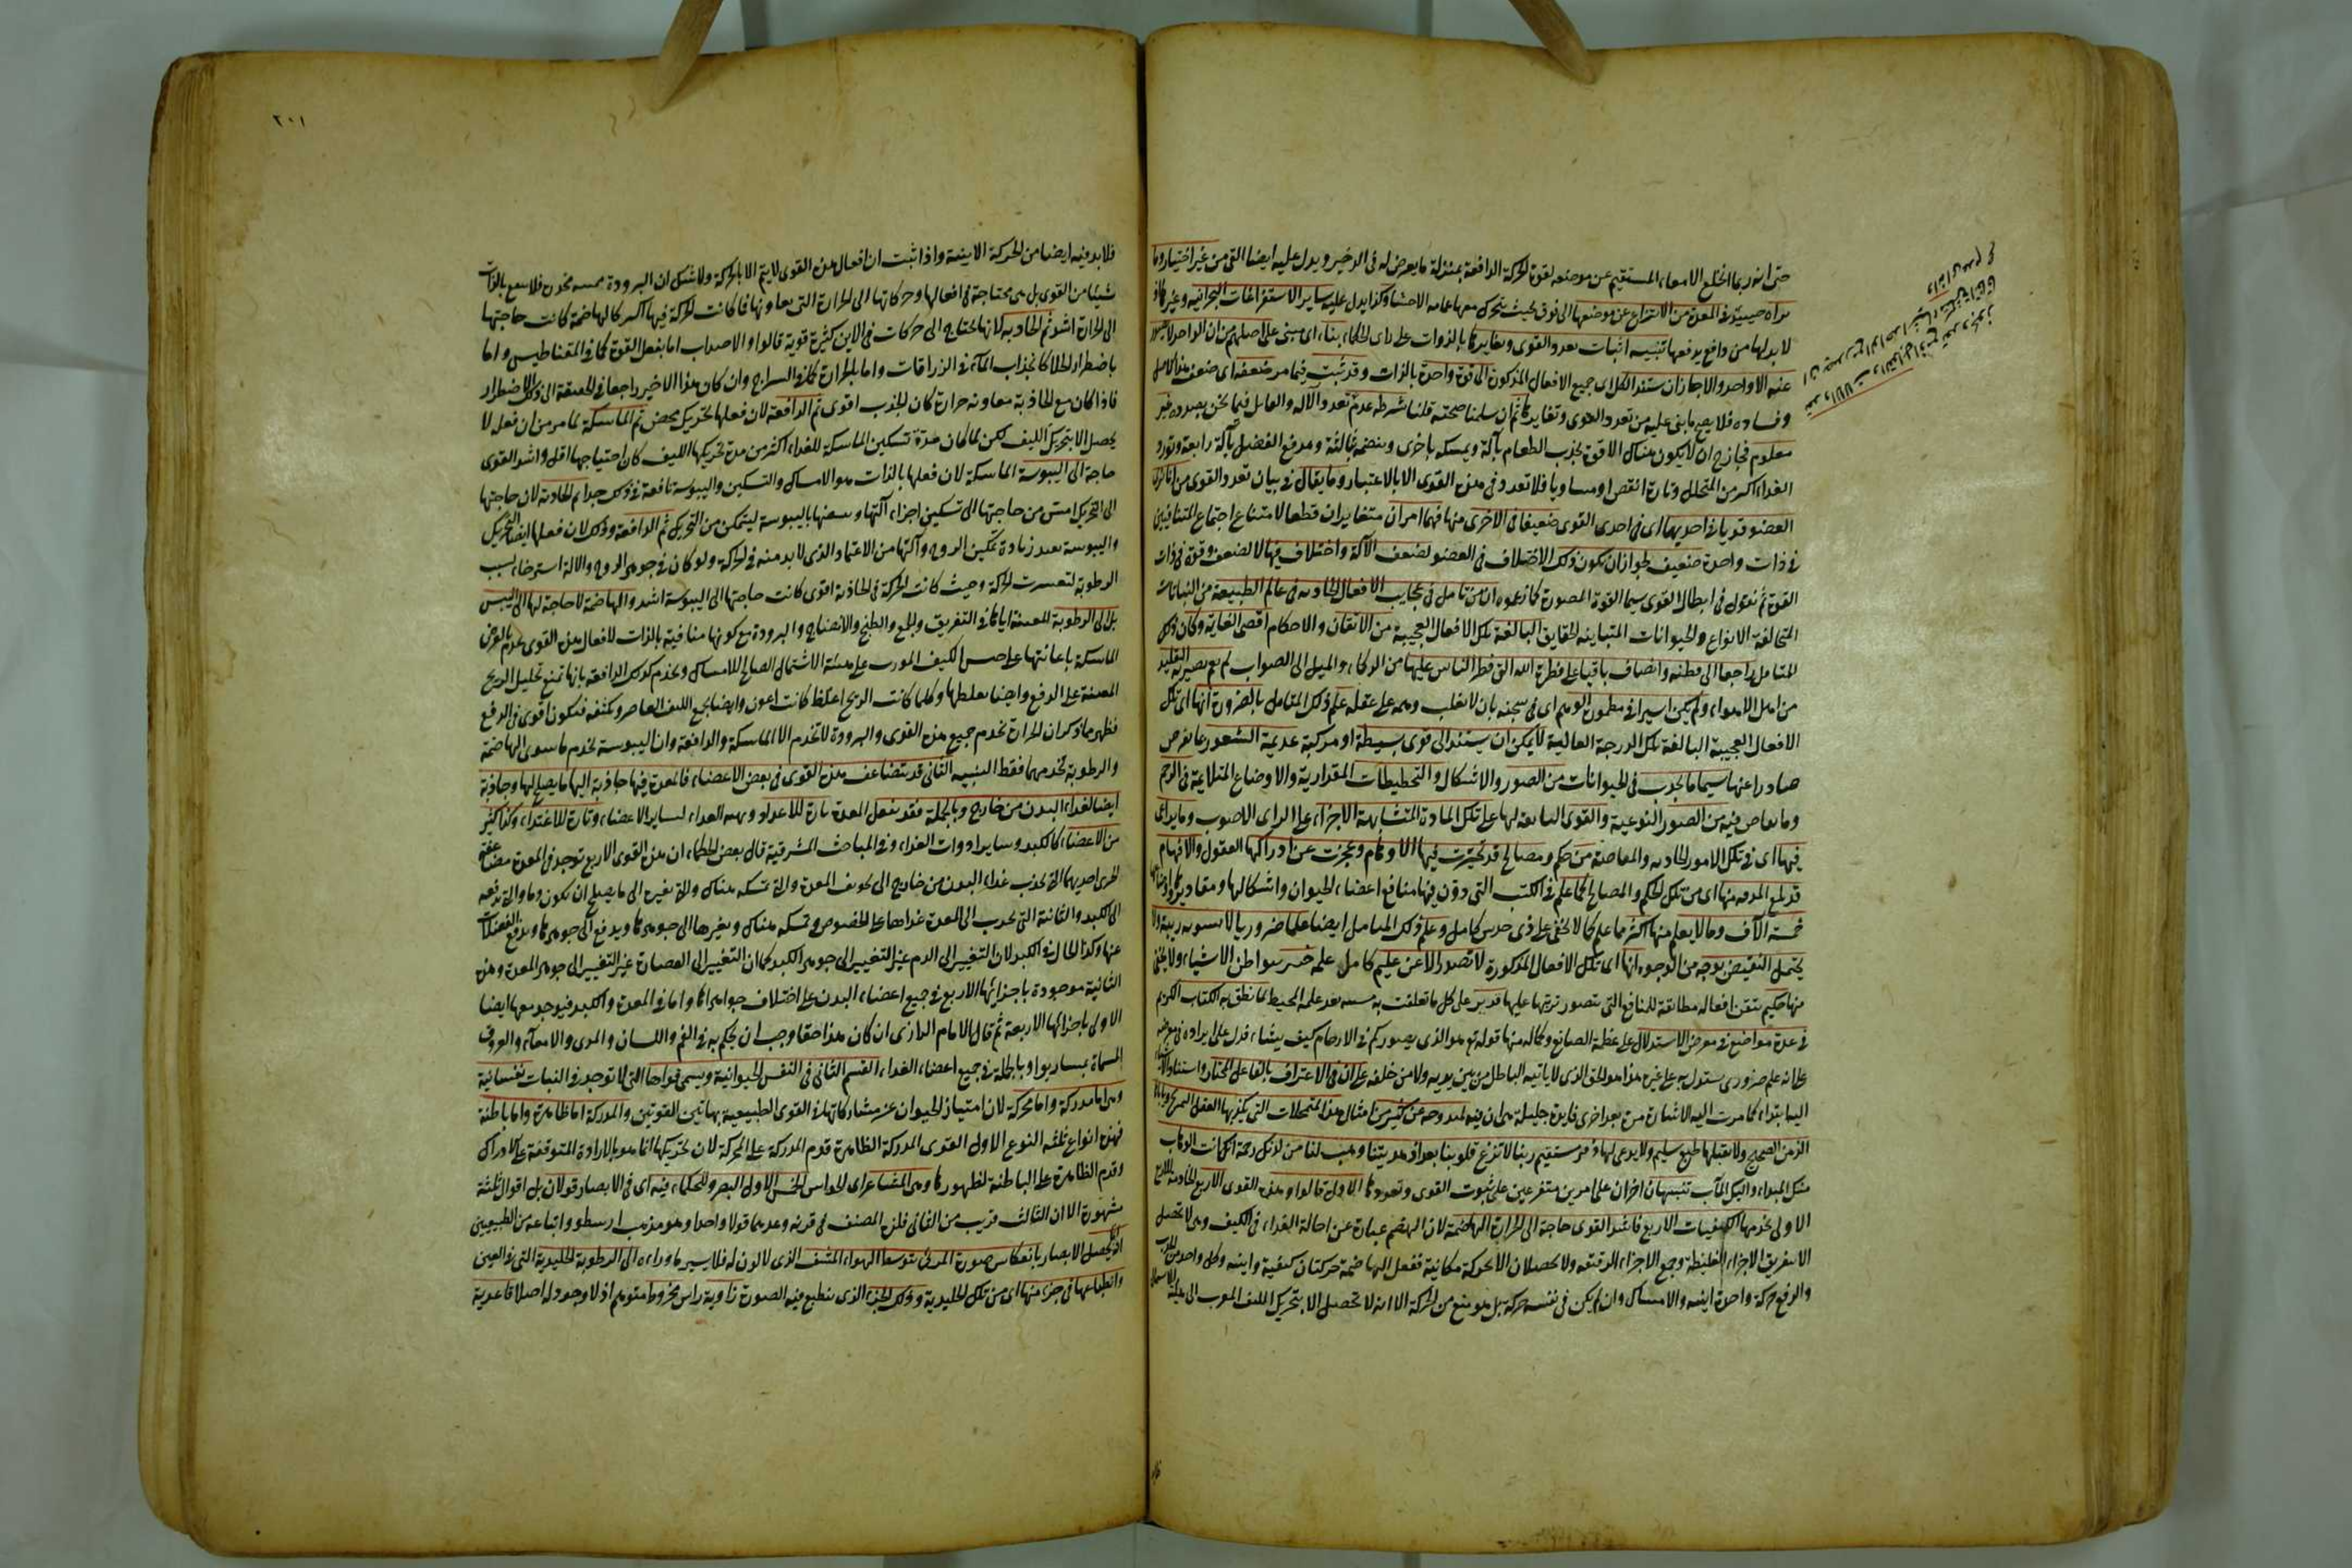 حتى انه ربما انخلع الامعاء المستقيم عن موضعه لقوة الحركة الدافعة بمنزلة ما يعرض له فى الزحير ويدل عليه ايضا القئ من غير اختيار وما
نراه حينئذ فى المعدة من الانتزاع عن موضعها الى فوق بحيث يتحرك معها عامة الاحشاء وكذا يدل عليه ساير الاستفراغات البحرانية وغيرها اذ
لا بد لها من دافع يدفعها تنبيه اثبات تعدد القوى وتغايرها بالذوات على راى الحكماء بناء اى مبنى على اصلهم من ان الواحد لا يصدر
عنه الا واحد والا جاز ان يستند الكل اى جميع الافعال المذكورة الى قوة واحدة بالذات وقد ثبت فيما مر ضعفه اى ضعف هذا الاصل
وفساده فلا يصح ما بنى عليه من تعدد القوى وتغايرها ثم ان سلمنا صحته قلنا شرطه عدم تعدد الآلة والقابل فيما نحن بصدده غير
معلوم فجاز ح ان لا يكون هناك الا قوة تجذب الطعام بآلة وتمسكه باخرى وتهضمه بثالثة وتدفع الفضل بآلة رابعة وتورد
الغذاء اكثر من المتحلل وتارة انقص او مساويا فلا تعدد فى هذه القوى الا بالاعتبار وما يقال فى بيان تعدد القوى من انا نرى
العضو قويا فى احديهما اى فى احدى القوى ضعيفا فى الاخرى منها فهما امران متغايران قطعا لامتناع اجتماع المتنافيين
فى ذات واحدة ضعيف لجواز ان يكون ذلك الاختلاف فى العضو لضعف الآلة واختلاف فيها لا لضعف وقوة فى ذات
القوة ثم نقول فى ابطال القوى سيما القوة المصورة كما زعموه ان من تامل فى عجايب الافعال الحادثة فى عالم الطبيعة من النباتات
المتخالفة الانواع والحيوانات المتباينة الحقايق البالغة تلك الافعال العجيبة من الاتقان والاحكام اقصى الغاية وكان ذلك
المتامل راجعا الى فطنة وانصاف باقيا على فطرة الله التى فطر الناس عليها من الذكاء والميل الى الصواب لم يعم بصيرته التقليد
من اهل الاهواء ولم يكن اسيرا فى مطمورة الوهم اى فى سجنه بان لا يغلب وهمه على عقله علم ذلك المتامل بالضرورة انها اى تلك
الافعال العجيبة البالغة تلك الدرجة العالية لا يمكن ان يستند الى قوى بسيطة او مركبة عديمة الشعور بما يفرض
صادرا عنها سيما ما يحدث فى الحيوانات من الصور والاشكال والتخطيطات المقدارية والاوضاع المتلائمة فى الرحم
وما يفاض فيه من الصور النوعية والقوى التابعة لها على تلك المادة المتشابهة الاجزاء على الراى الاصوب وما يراعى
فيها اى فى تلك الامور الحادثة والمفاضة من حكم ومصالح قد تحيرت فيها الاوهام وعجزت عن ادراكها العقول والافهام
قد بلغ المدونة منها اى من تلك الحكم والمصالح كما علم فى الكتب التى دون فيها منافع اعضاء الحيوان واشكالها ومقاديرها واوضاعها
خمسة آلاف وما لا يعلم منها اكثر مما علم كما لا يخفى على ذى حدس كامل وعلم ذلك المتامل ايضا علما ضروريا لا يشوبه ريبة ولا
يحتمل النقيض بوجه من الوجوه انها اى تلك الافعال المذكورة لا تصدر الا عن عليم كامل علمه خبير ببواطن الاشياء ولا يخفى
منها حكيم يتقن افعاله مطابقة للمنافع التى يتصور ترتبها عليها قدير على كل ما تعلقت به مشيته بعد علمه المحيط كما نطق به الكتاب الكريم
فى عدة مواضع فى معرض الاستدلال على عظمة الصانع وكماله منها قوله تع هو الذى يصوركم فى الارحام كيف يشاء فدل على ايراده فى معرضه
على انه علم ضرورى يستدل به على غيره هذا هو الحق الذى لا ياتيه الباطل من بين يديه ولا من خلفه على ان فى الاعتراف بالفاعل المختار واستناد الاشياء
اليه ابتداء كما مرت اليه الاشارة مرة بعد اخرى فايدة جليلة هى ان فيه لمندوحة عن كثير من امثال هذا التمحلات التى يكذبها العقل الصريح ويأباها
الذهن الصحيح ولا يقبلها طبع سليم ولا يدعى لها ذهن مستقيم ربنا لا تزغ قلوبنا بعد اذ هديتنا وهب لنا من لدنك رحمة انك انت الوهاب
منك المبداء واليك المآب تنبيهان اخران على امرين متفرعين على ثبوت القوى وتعددها الاول قالوا وهذه القوى الاربع الخادمة
الاولى تخدمها الكيفيات الاربع فاشد القوى حاجة الى الحرارة الهاضمة لان الهضم عبارة عن احالة الغذاء فى الكيف وهى لا تحصل
الا بتفريق الاجزاء الغليظة وجمع الاجزاء الرقيقة ولا يحصلان الا بحركة مكانية ففعل الهاضمة حركتان كيفية واينية وكل واحد من الجذب
والدفع حركة واحدة اينية والامساك وان لم يكن فى نفسه حركة بل هو منع من الحركة الا انه لا تحصل الا بتحريك الليف المورب الى هيئة الاشتمال
٢٠١
فلا بد فيه ايضا من الحركة الاينية واذا ثبت ان افعال هذه القوى لا يتم الا بالحركة ولا شك ان البرودة مميتة مخدرة فلا تنفع بالذات
شيئا من القوى بل هى محتاجة فى افعالها وحركاتها الى الحرارة التى تعاونها فما كانت الحركة فيها اكثر كالهاضمة كانت حاجتها
الى الحرارة اشد ثم الجاذبة لانها تحتاج الى حركات فى الاين كثيرة قوية قالوا والاجتذاب اما بفعل القوة كما فى المقناطيس واما
باضطرار الخلا كانجذاب الماء فى الزراقات واما بالحرارة كما فى السراج وان كان هذا الاخير راجعا فى الحقيقة الى ذلك الاضطرار
فاذا كان مع الجاذبة معاونة حرارة كان الجذب اقوى ثم الدافعة لان فعلها تحريك محض ثم الماسكة لما مر من ان فعله لا
يحصل الا بتحريك الليف لكن لما كان مدة تسكين الماسكة للغذاء اكثر من مدة تحريكها الليف كان احتياجها اقل واشد القوى
حاجة الى اليبوسة الماسكة لان فعلها بالذات هو الامساك والتسكين واليبوسة نافعة فى ذلك جدا ثم الجاذبة لان حاجتها
الى التحريك امس من حاجتها الى تسكين اجزاء آلتها وبعضها باليبوسة ليتمكن من التحريك ثم الدافعة وذلك لان فعلها ايضا التحريك
واليبوسة تفيد زيادة تمكين الروح وآلتها من الاعتماد الذى لا بد منه فى الحركة ولو كان فى جوهر الروح والالة استرخاء بسبب
الرطوبة لتعسرت الحركة وحيث كانت الحركة فى الجاذبة اقوى كانت حاجتها الى اليبوسة اشد والهاضمة لا حاجة لها الى اليبس
بل الى الرطوبة المعينة اياها فى التفريق والجمع والطبخ والانضاج والبرودة مع كونها منافية بالذات لافعال هذه القوى تخدم بالعرض
الماسكة باعانتها على حبس الليف المورب على هيئة الاشتمال الصالح للامساك وتخدم كذلك الدافعة بانها تمنع تحليل الريح
المعينة على الدفع وايضا تغلظها وكلما كانت الريح اغلظ كانت اعون وايضا تجمع الليف العاصر وتكثفه فتكون اقوى فى الدفع
فظهر مما ذكر ان الحرارة تخدم جميع هذه القوى والبرودة لا تخدم الا الماسكة والدافعة وان اليبوسة تخدم ما سوى الهاضمة
والرطوبة تخدمها فقط التنبيه الثانى قد تتضاعف هذه القوى فى بعض الاعضاء فالمعدة فيها جاذبة اليها ما يصلح لها وجاذبة
ايضا لغذاء البدن من خارج وبالجملة فقد يفعل المعدة تارة للاعداد وتهيئة الغذاء لساير الاعضاء وتارة للاغتذاء وكذا كثير
من الاعضاء كالكبد وساير ادوات الغذاء وفى المباحث المشرقية قال بعض الحكماء ان هذه القوى الاربع توجد فى المعدة مضاعفة
احديهما التى تجذب غذاء البدن من خارج الى تجويف المعدة والتى تمسكه هناك والتى تغيره الى ما يصلح ان يكون دما والتى تدفعه
الى الكبد والثانية التى تجذب الى المعدة غذاها على الخصوص وتمسكه هناك وتغيرها الى جوهرها ويدفع الى جوهرها وتدفع الفضلات
عنها وكذا الحال فى الكبد لان التغيير الى الدم غير التغيير الى جوهر الكبد كما ان التغيير الى العصارة غير التغيير الى جوهر المعدة وهذه
الثانية موجودة باجزائها الاربع فى جميع اعضاء البدن على اختلاف جواهرها واما فى المعدة والكبد فيوجد معها ايضا
الاولى باجزائها الاربعة ثم قال الامام الرازى ان كان هذا حقا وجب ان يحكم به فى الفم واللسان والمرى والامعاء والعروق
المسماة بماساريقا وبالجملة فى جميع اعضاء الغذاء القسم الثانى فى النفس الحيوانية ويسمى قواها التى لا توجد فى النبات نفسانية
وهى اما مدركة واما محركة لان امتياز الحيوان عن مشاركاتها فى القوى الطبيعية بهاتين القوتين والمدركة اما ظاهرة واما باطنة
فهذه انواع ثلثة النوع الاول القوى المدركة الظاهرة قدم المدركة على المحركة لان تحريكها انما هو بالارادة المتوقفة على الادراك
وقدم الظاهرة على الباطنة لظهورها وهى المشاعر اى الحواس الخمس الاول البصر وللحكماء فيه اى فى الابصار قولان بل اقوال ثلثة
مشهورة الا ان الثالث قريب من الثانى فلذلك المصنف فى قرنه وعدهما قولا واحدا وهو مذهب ارسطو واتباعه من الطبيعيين
انه يحصل الابصار بانعكاس صورة المرئى بتوسط الهواء المشف الذى لا لون له فلا يستر ما وراءه الى الرطوبة الجليدية التى فى العين
وانطباعها فى جزء منها اى من تلك الجليدية وذلك الجزء الذى ينطبع فيه الصورة زاوية راس مخروط متوهم اذ لا وجود له اصلا قاعدته